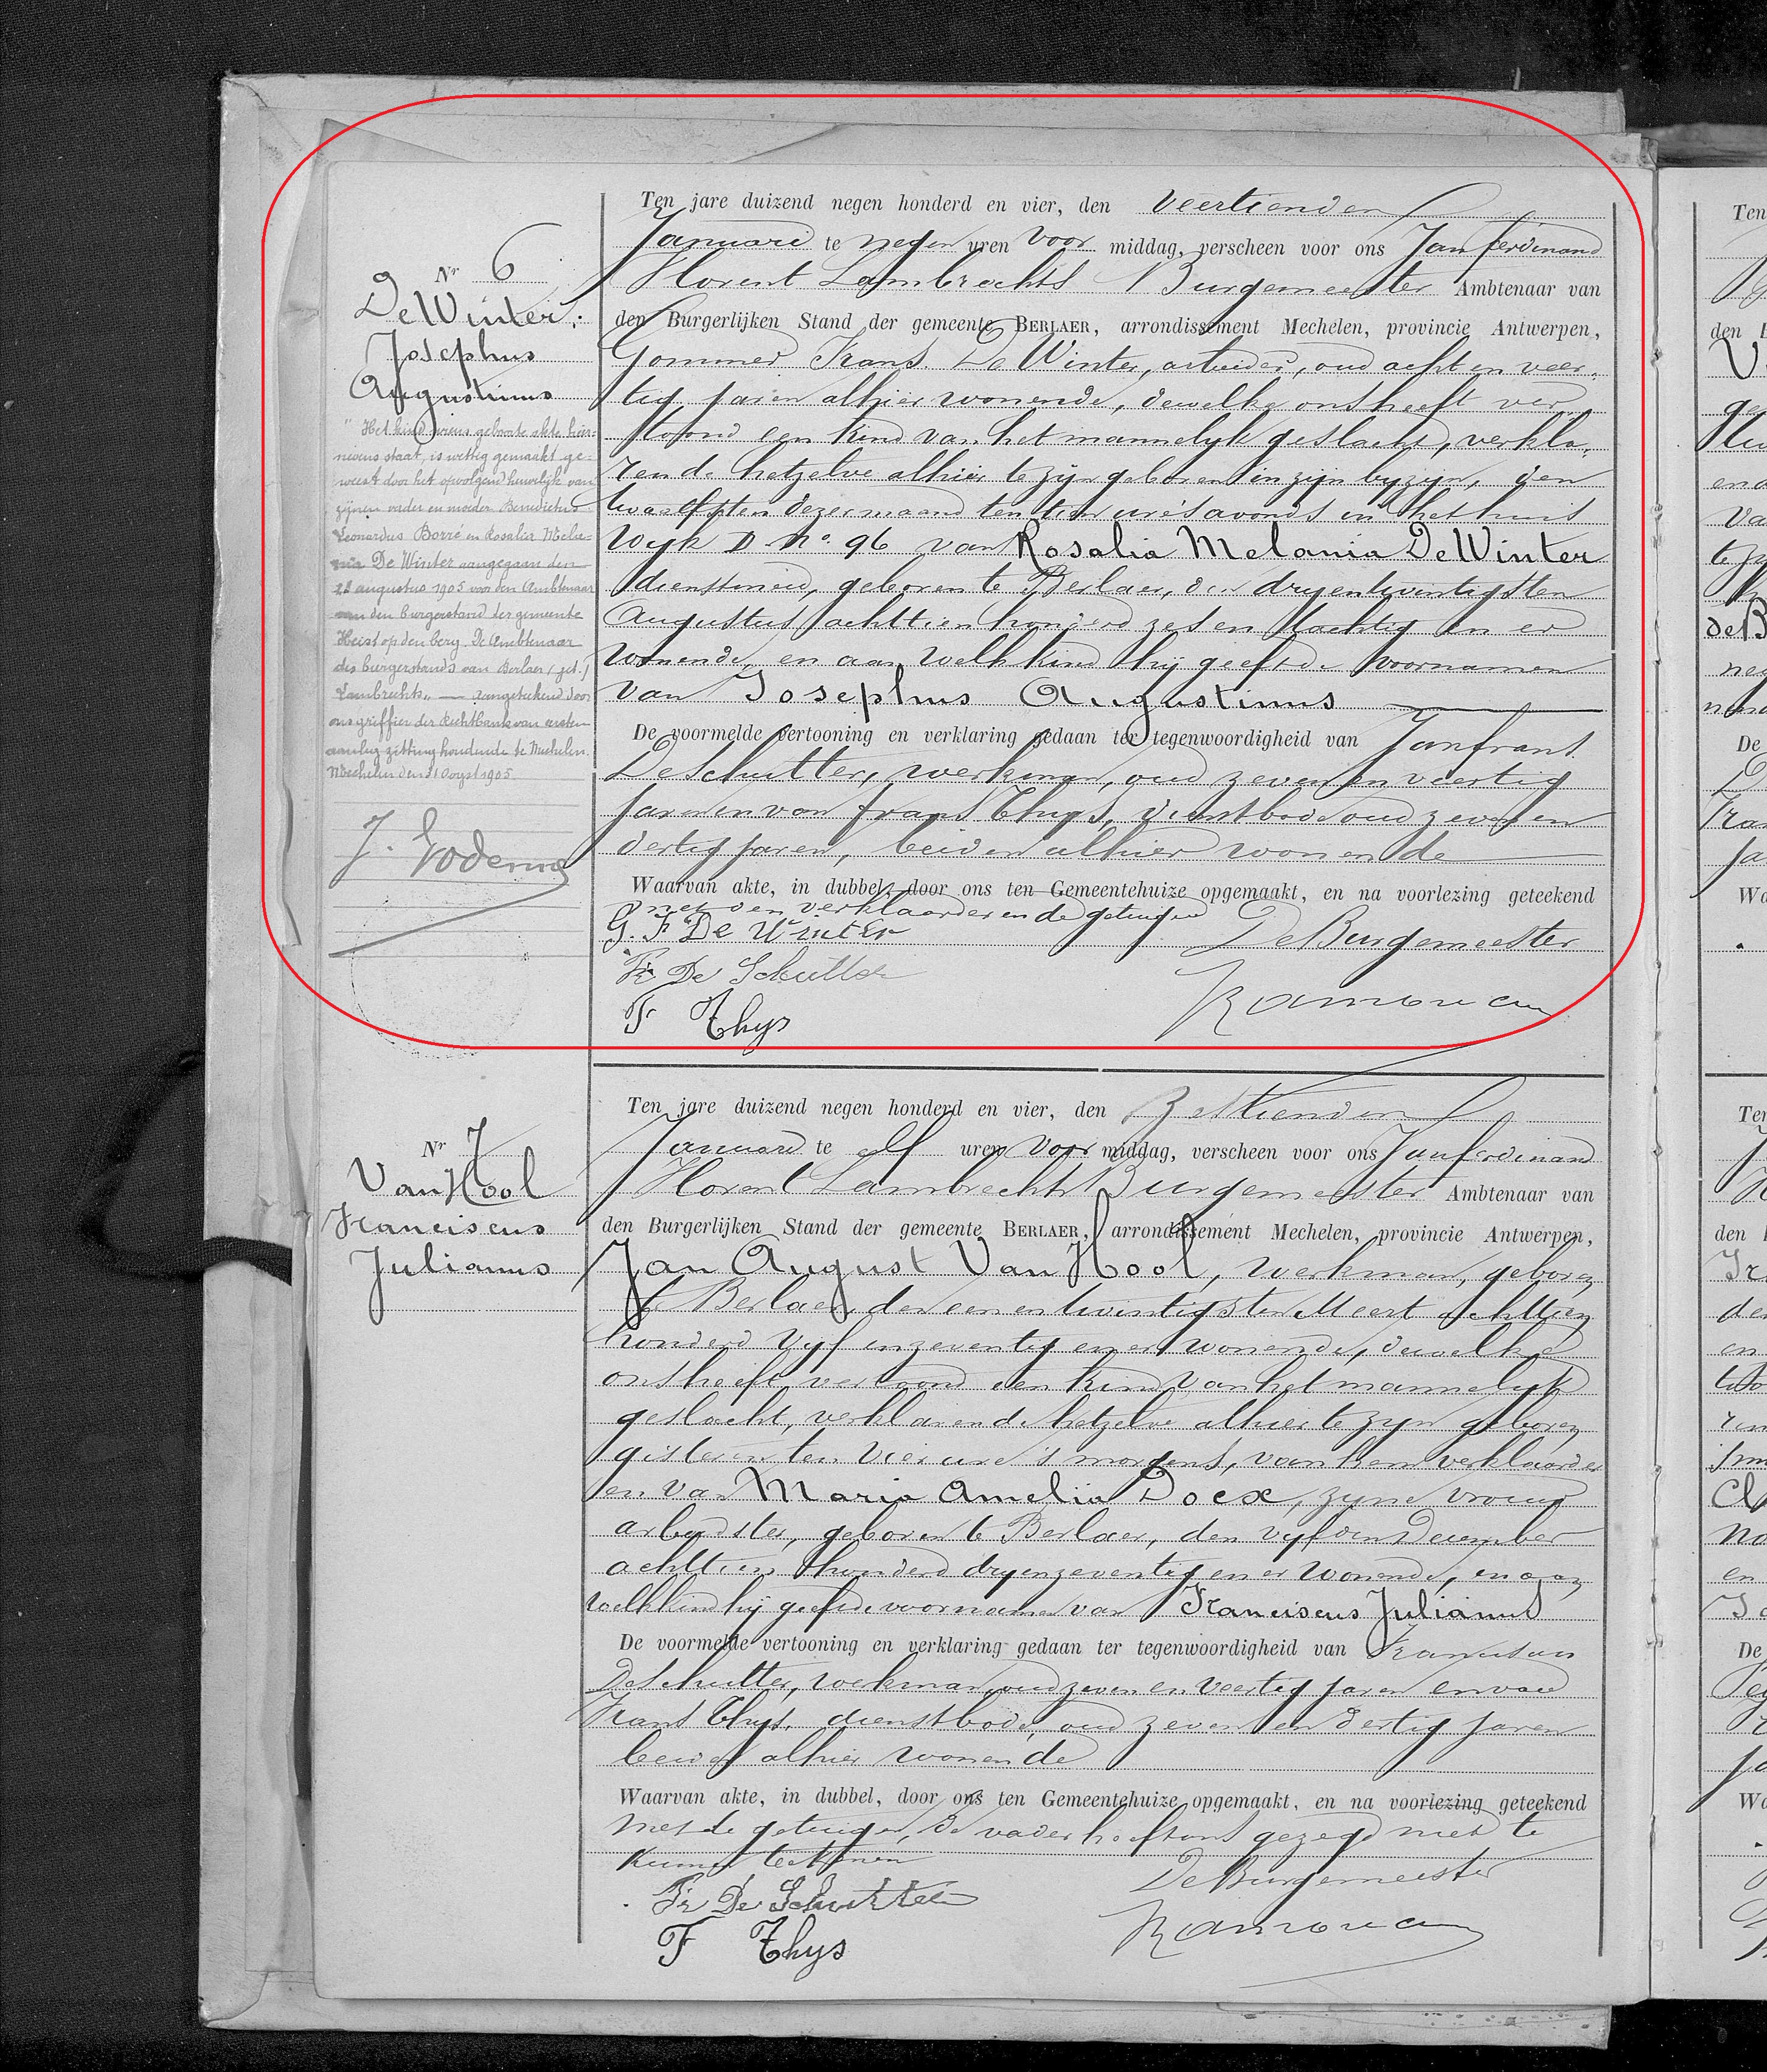 Nr 6
De Winter.
Josephus
Augustinus
"Het kind wiens geboorte akte hier-
nevens staat, is wettig gemaakt ge-
weest door het opvolgend huwelijk van
zijnen vader en moeder Benedictus
Leonardus Borré en Rosalia Mela-
nia De Winter aangegaan den
22 augustus 1905 voor den Ambtenaar
van den burgerstand der gemeente
Heist op den berg. De Ambtenaar
des burgerstands van Berlaer (get.)
Lambrechts" — Aangeteekend door
ons griffier der Rechtbank van eersten
aanleg zitting houdende te Mechelen.
Mechelen den 31 Oogst 1905.
Ten jare duizend negen honderd en vier, den veertienden
Januari te negen uren voor middag, verscheen voor ons Jan ferdinand
Florent Lambrechts Burgemeester Ambtenaar van
den Burgerlijken Stand der gemeente BERLAER, arrondissement Mechelen, provincie Antwerpen,
Gommer Frans De Winter, arbeider, oud acht en veer-
tig jaren alhier wonende, dewelke ons heeft ver
toond een kind van het mannelyk geslacht, verkla-
rende hetzelve alhier te zijn geboren in zijn byzijn, den
twaalfsten dezer maand ten tien ure 's avonds in het huis
Wyk D no. 96 van Rosalia Melania De Winter
dienstmeid, geboren te Berlaer, den dryentwintigsten
Augustus achttien honderd zes en tachtig en er
wonende, en aan welk kind hij geeft de voornamen
van Josephus Augustinus
De voormelde vertooning en verklaring gedaan ter tegenwoordigheid van Jan frans
De Schutter, werkman, oud zeven en veertig
jaren en van frans Thys, dienstbode oud zeven en
dertig jaren, beiden alhier wonende
Waarvan akte, in dubbel, door ons ten Gemeentehuize opgemaakt, en na voorlezing geteekend
met den verklaarder en de getuigen
G. F De Winter De Burgemeester
Fr De Schutter
F Thys
Nr 7
Van Hool
Franciscus
Julianus
Ten jare duizend negen honderd en vier, den Zestienden
Januari te elf uren voor middag, verscheen voor ons Jan ferdinand
Florent Lambrechts Burgemeester Ambtenaar van
den Burgerlijken Stand der gemeente BERLAER, arrondissement Mechelen, provincie Antwerpen,
Jan August Van Hool, werkman, geboren
te Berlaer, den een en twintigsten Meert achttien
honderd vyf en zeventig en er wonende, dewelke
ons heeft vertoond een kind van het mannelyk
geslacht, verklarende hetzelve alhier te zyn geboren
gisteren ten vier ure 's morgens, van hem verklaarder
en van Maria Amelia Docx, zyne vrouw
arbeidster, geboren te Berlaer, den vyfden December
achttien honderd dryenzeventig en er wonende, en aan
welk kind hij geeft de voornamen van Franciscus Julianus
De voormelde vertooning en verklaring gedaan ter tegenwoordigheid van
De Schutter, werkman, oud zeven en veertig jaren en van
Frans Thys, dienstbode, oud zeven en dertig jaren
beiden alhier wonende
Waarvan akte, in dubbel, door ons ten Gemeentehuize opgemaakt, en na voorlezing geteekend
met de getuigen, de vader heeft ons gezegd niet te
kunnen teekenen
De Burgemeester
Fr De Schutter
F Thys